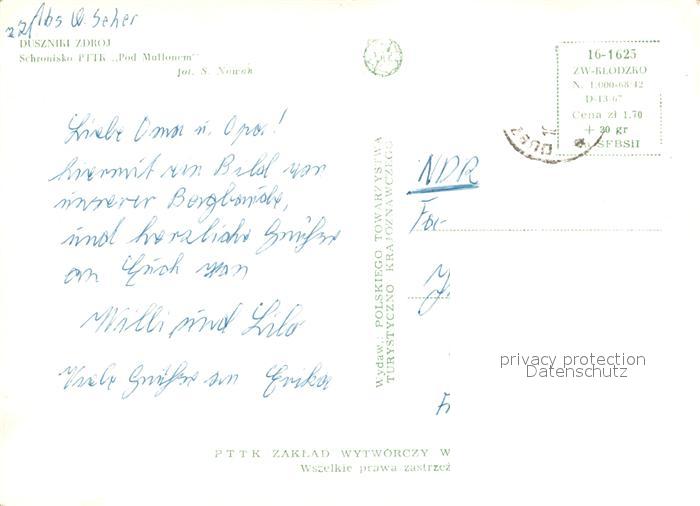 Abs W. Seher
DUSZNIKI ZDROJ
Schronisko PTTK „Pod Muflonem"
fot. S. Nowak
Liebe Oma u. Opa!
hiermit ein Bild von
unserer Bergbaude,
und herzliche Grüße
an Euch von
Willi und Lilo
Viele Grüße an Erika
Wydaw.: POLSKIEGO TOWARZYSTWA
TURYSTYCZNO KRAJOZNAWCZEGO
16-1625
ZW-KŁODZKO
N. 1.000-68/42
D-13/67
Cena zł 1.70
+ 30 gr
SFBSiI
NDR
privacy protection
Datenschutz
PTTK ZAKŁAD WYTWÓRCZY W
Wszelkie prawa zastrzeż